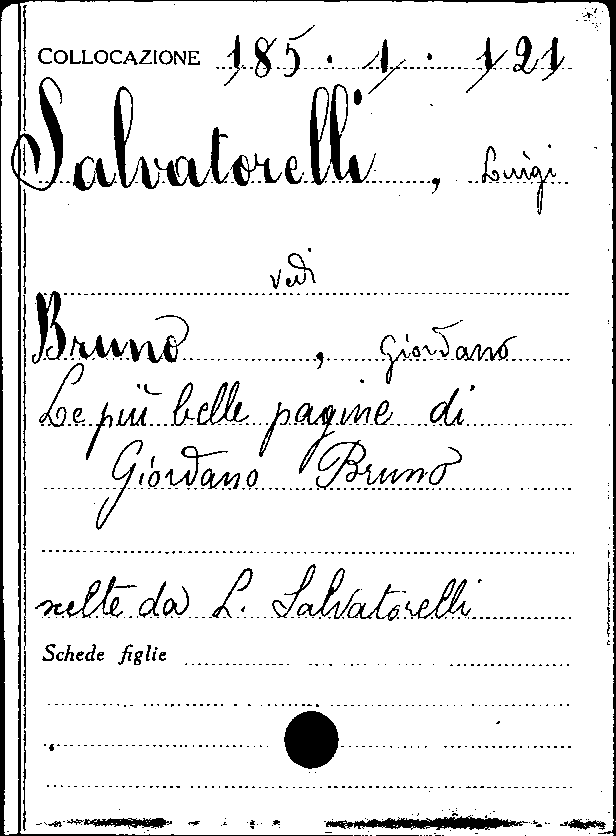 COLLOCAZIONE 185 . 1 . 121
Salvatorelli, Luigi
vedi
Bruno, Giordano
Le più belle pagine di
Giordano Bruno
scelte da L. Salvatorelli
Schede figlie